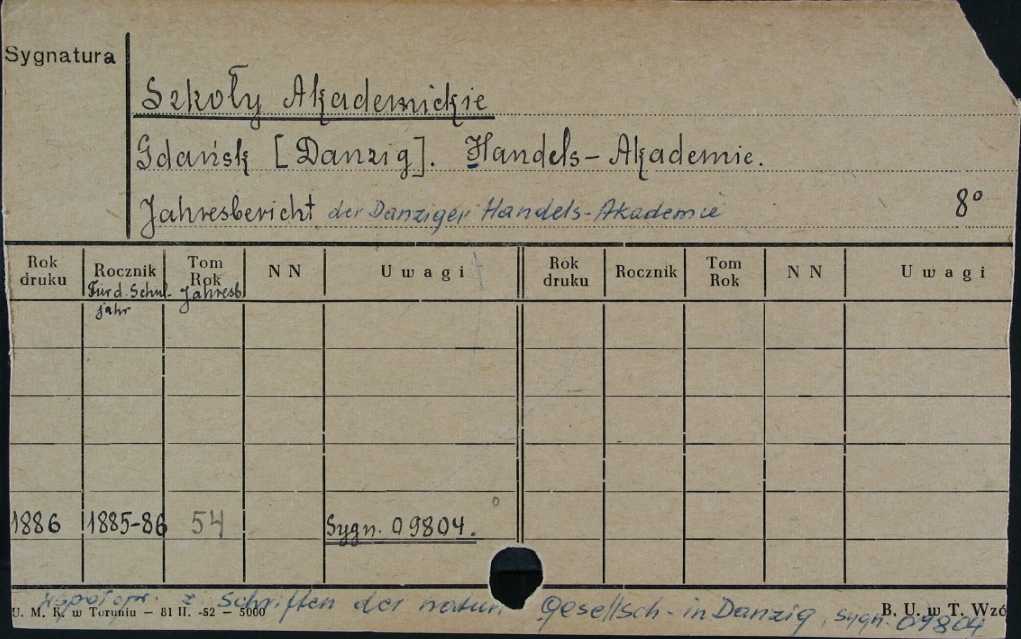 Sygnatura
Szkoły Akademickie
Gdańsk [Danzig]. Handels-Akademie.
Jahresbericht der Danziger Handels-Akademie 8°
Rok druku Rocznik Tom Rok N N Uwagi Rok druku Rocznik Tom Rok N N Uwagi
Für d. Schul- Jahresb
jahr
1886 1885-86 54 Sygn. 09804.
Współopr. z Schriften der natur. Gesellsch- in Danzig, sygn. 09804
U. M. K. w Toruniu — 81 II. -52 — 5000 B. U. w T. Wzó